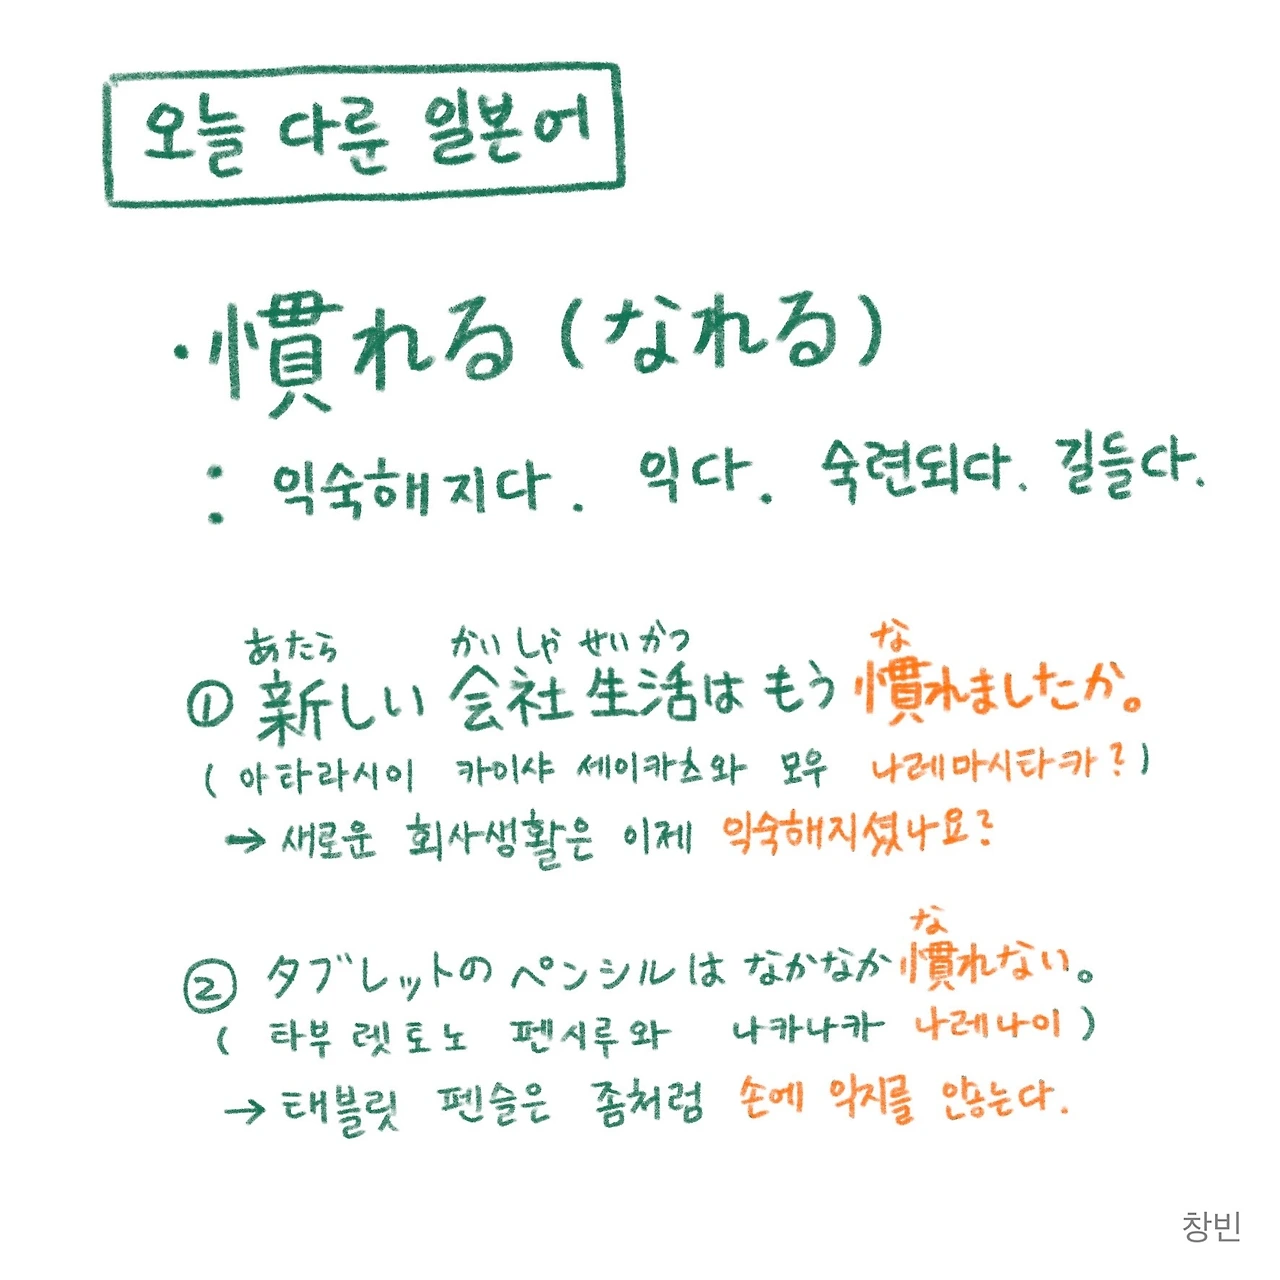 오늘 다룬 일본어
· 慣れる (なれる)
: 익숙해지다. 익다. 숙련되다. 길들다.
あたら かいしゃ せいかつ な
① 新しい 会社 生活は もう 慣れましたか。
( 아타라시이 카이샤 세이카츠와 모우 나레마시타카? )
→ 새로운 회사생활은 이제 익숙해지셨나요?
な
② タブレットの ペンシルは なかなか 慣れない。
( 타부렛토노 펜시루와 나카나카 나레나이 )
→ 태블릿 펜슬은 좀처럼 손에 익지를 않는다.
창빈